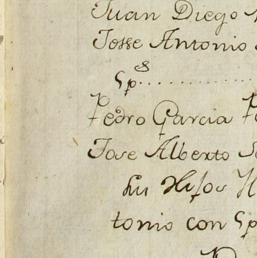 Juan Diego
Josse Antonio
Sp.s
Pedro Garcia
Jose Alberto
su Hijos
tonio con Sp